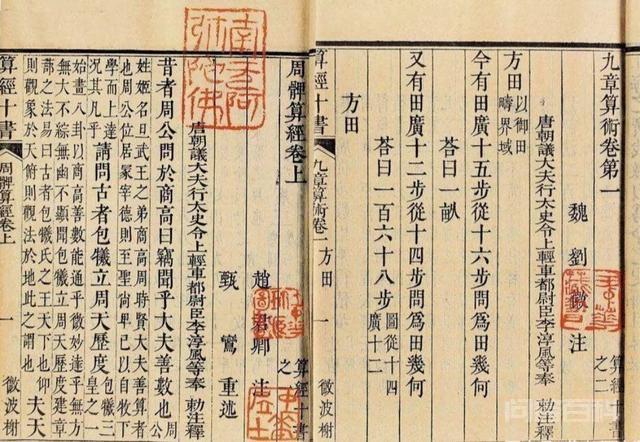 九章算術卷第一
算經十書之二
魏 劉徽 注
唐朝議大夫行太史令上輕車都尉臣李淳風等奉 敕注釋
方田 以御田疇界域
今有田廣十五步從十六步問為田幾何
荅曰一畝
又有田廣十二步從十四步問為田幾何
荅曰一百六十八步 圖從十四廣十二
方田
算經十書 九章算術卷一 方田 一 微波榭
周髀算經卷上
算經十書之一
趙君卿 注
甄鸞 重述
唐朝議大夫行太史令上輕車都尉臣李淳風等奉 敕注釋
昔者周公問於商高曰竊聞乎大夫善數也 周公
姓姬名旦武王之弟商高周時賢大夫善算者
也周公位居冢宰德則至聖尚卑己以自牧下
學而上達
況其凡乎 請問古者包犧立周天歷度 包犧三皇之一
始畫八卦以商高善數能通乎微妙達乎無方
無大不綜無幽不顯聞包犧立周天歷度建章
蔀之法易曰古者包犧氏之王天下也仰
則觀象於天俯則觀法於地此之謂也 夫天
算經十書 周髀算經卷上 一 微波榭
南无阿弥陀佛